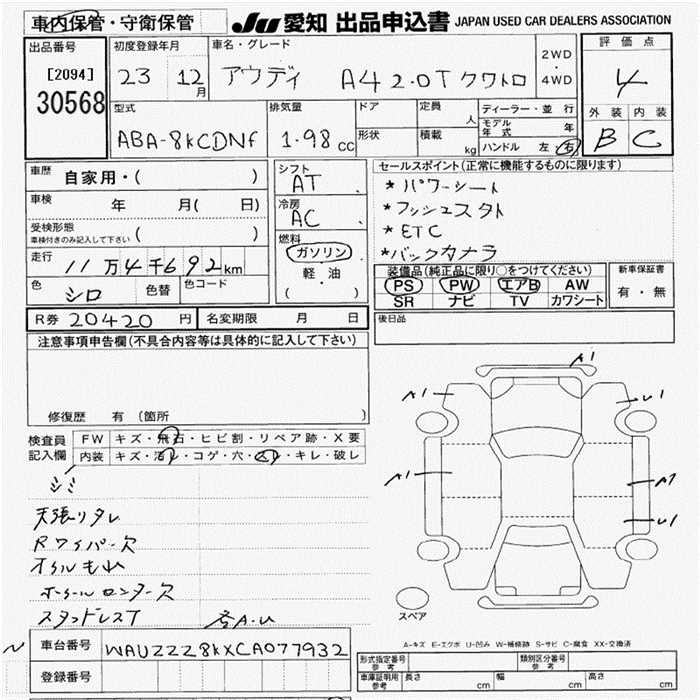 車内保管・守衛保管 JU 愛知 出品申込書 JAPAN USED CAR DEALERS ASSOCIATION
出品番号 初度登録年月 車名・グレード 2WD・4WD 評価点
[2094] 23 12月 アウディ A4 2.0T クワトロ 4
30568 外装 内装
型式 排気量 ドア 定員 人 ディーラー・並行 B C
ABA-8KCDNF 1.98 CC 形状 積載 kg モデル年式 年
ハンドル 左 右
車歴 自家用・( ) シフト AT セールスポイント(正常に機能するものに限ります)
車検 年 月( 日) 冷房 AC *パワーシート
受検形態 ( ) *プッシュスタート
車検付きのみ記入して下さい 燃料 *ETC
走行 11万4千692km ガソリン *バックカメラ
色 シロ 色替 色コード 軽・油 ( )
装備品(純正品に限り○をつけてください) 新車保証書
PS PW エアB AW 有・無
SR ナビ TV カワシート
R券 20420 円 名変期限 月 日 後日品
注意事項申告欄(不具合内容等は具体的に記入して下さい)
修復歴 有 (箇所 )
検査員記入欄 FW キズ・飛石・ヒビ割・リペア跡・X要
内装 キズ・汚レ・コゲ・穴・スレ・キレ・破レ
A1
A1 U1
A1 A7
U1
シミ
天張リタレ
Rワイパー欠
オイルもれ
ホイールセンター欠
スタッドレスT 各A.U
スペア
A-キズ E-エクボ U-凹み W-補修跡 S-サビ C-腐食 XX-交換済
車台番号 WAUZZZ8KXCA077932
登録番号
形式指定番号 参考 類別区分番号 参考
車庫証明用 参考 長さ cm 幅 cm 高さ cm